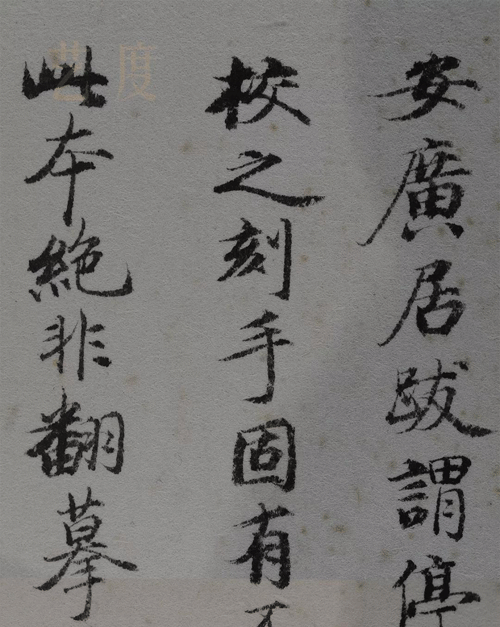 安廣居跋謂停
校之刻手固有不
此本絕非翻摹
藝度